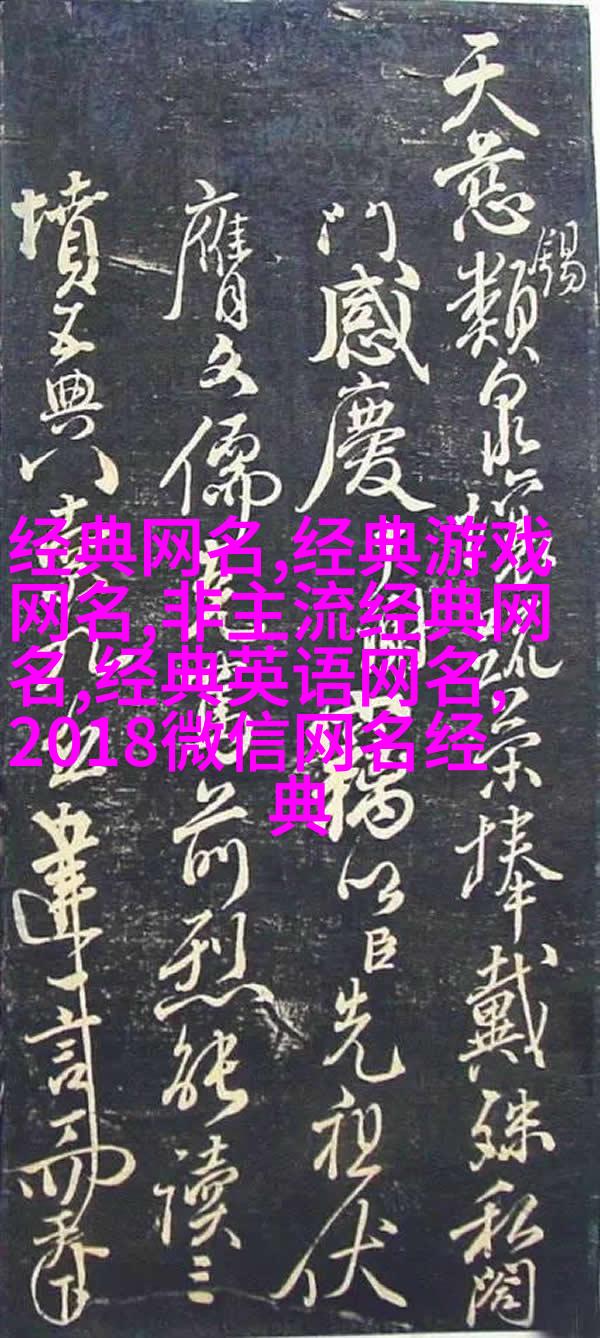 天慈類錫泉疏榮捧戴殊私閤
門感慶竊以臣先祖伏
膺文儒前烈能讀三
墳五典八索九丘建言
经典网名,经典游戏
网名,非主流经典网
名,经典英语网名,
2018微信网名经
典